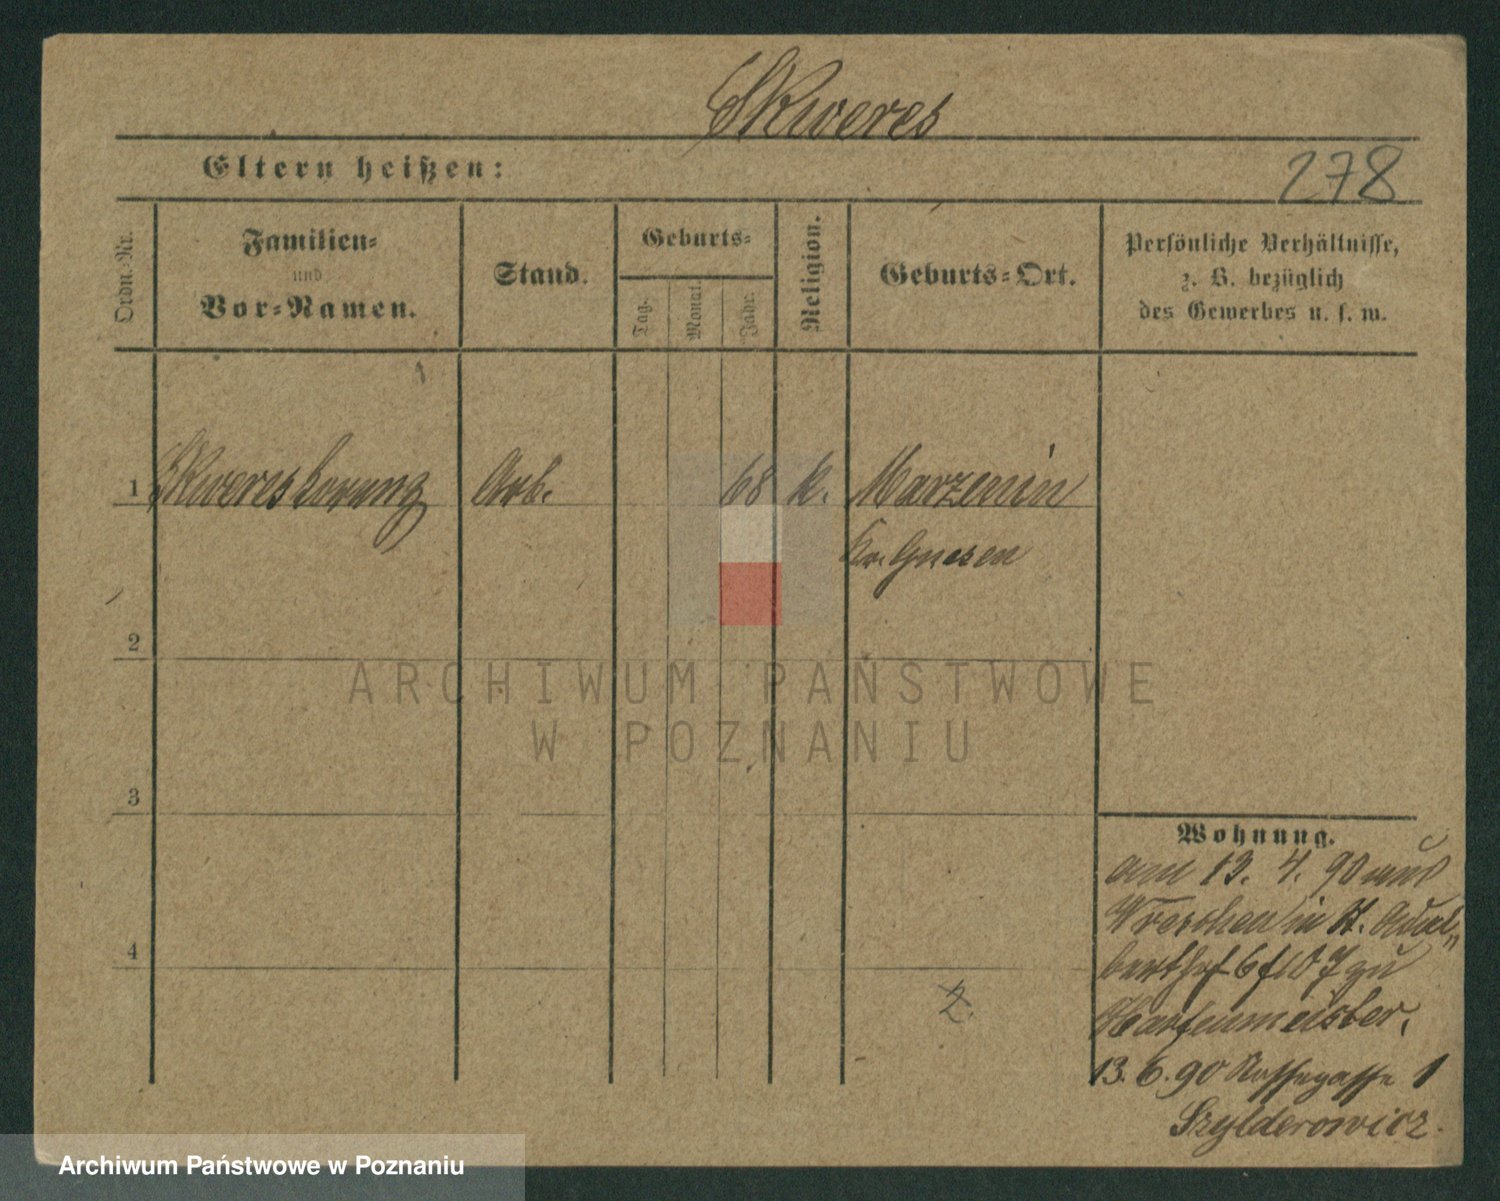 Skweres
Eltern heißen:
278
Ordn.-Nr.
Familien-
und
Vor-Namen.
Stand.
Geburts-
Tag.
Monat.
Jahr.
Religion.
Geburts-Ort.
Persönliche Verhältnisse,
z. B. bezüglich
des Gewerbes u. s. w.
1 Skweres Lorenz Arb. 68 k. Marzenin
Kr. Gnesen
2
ARCHIWUM PAŃSTWOWE
W POZNANIU
3
Wohnung.
am 13. 4. 90 aus
Wreschen in St. Adal-
4
zu
Hartenmeister.
13. 6. 90 1
Szylderowicz.
Archiwum Państwowe w Poznaniu